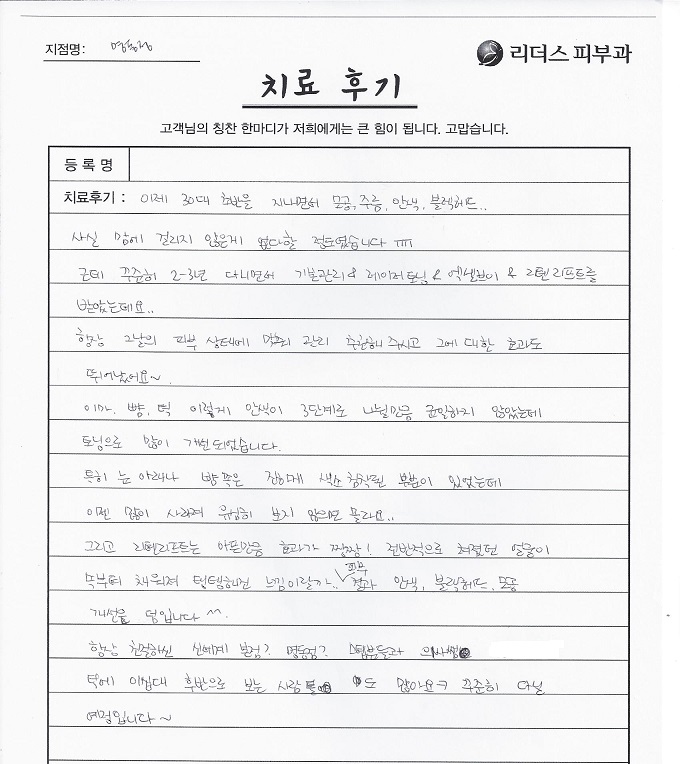 지점명: 명동점
리더스 피부과
치료 후기
고객님의 칭찬 한마디가 저희에게는 큰 힘이 됩니다. 고맙습니다.
등록명
치료후기 : 이제 30대 초반을 지나면서 모공, 주름, 안색, 블랙헤드..
사실 맘에 걸리지 않은게 없다할 정도였습니다 ㅠㅠ
근데 꾸준히 2-3년 다니면서 기본관리 & 레이저토닝 & 엑셀브이 & 리텐리프트를
받았는데요..
항상 그날의 피부 상태에 맞춰 관리 추천해주시고 그에 대한 효과도
뛰어났어요~.
이마, 뺨, 턱 이렇게 안색이 3단계로 나뉠만큼 균일하지 않았는데
토닝으로 많이 개선되었습니다.
특히 눈 아래나 뺨쪽은 진하게 색소침착된 부분이 있었는데
이젠 많이 사라져 유심히 보지 않으면 몰라요..
그리고 리텐리프트는 아픈만큼 효과가 짱짱! 전반적으로 처졌던 얼굴이
속부터 채워져 탱탱해진 느낌이랄까.. 피부 결과 안색, 블랙헤드, 모공
개선은 덤입니다 ^^.
항상 친절하신 신세계 본점? 명동점? 스텝분들과 의사쌤
덕에 이십대 후반으로 보는 사람 도 많아요ㅋ 꾸준히 다닐
예정입니다~